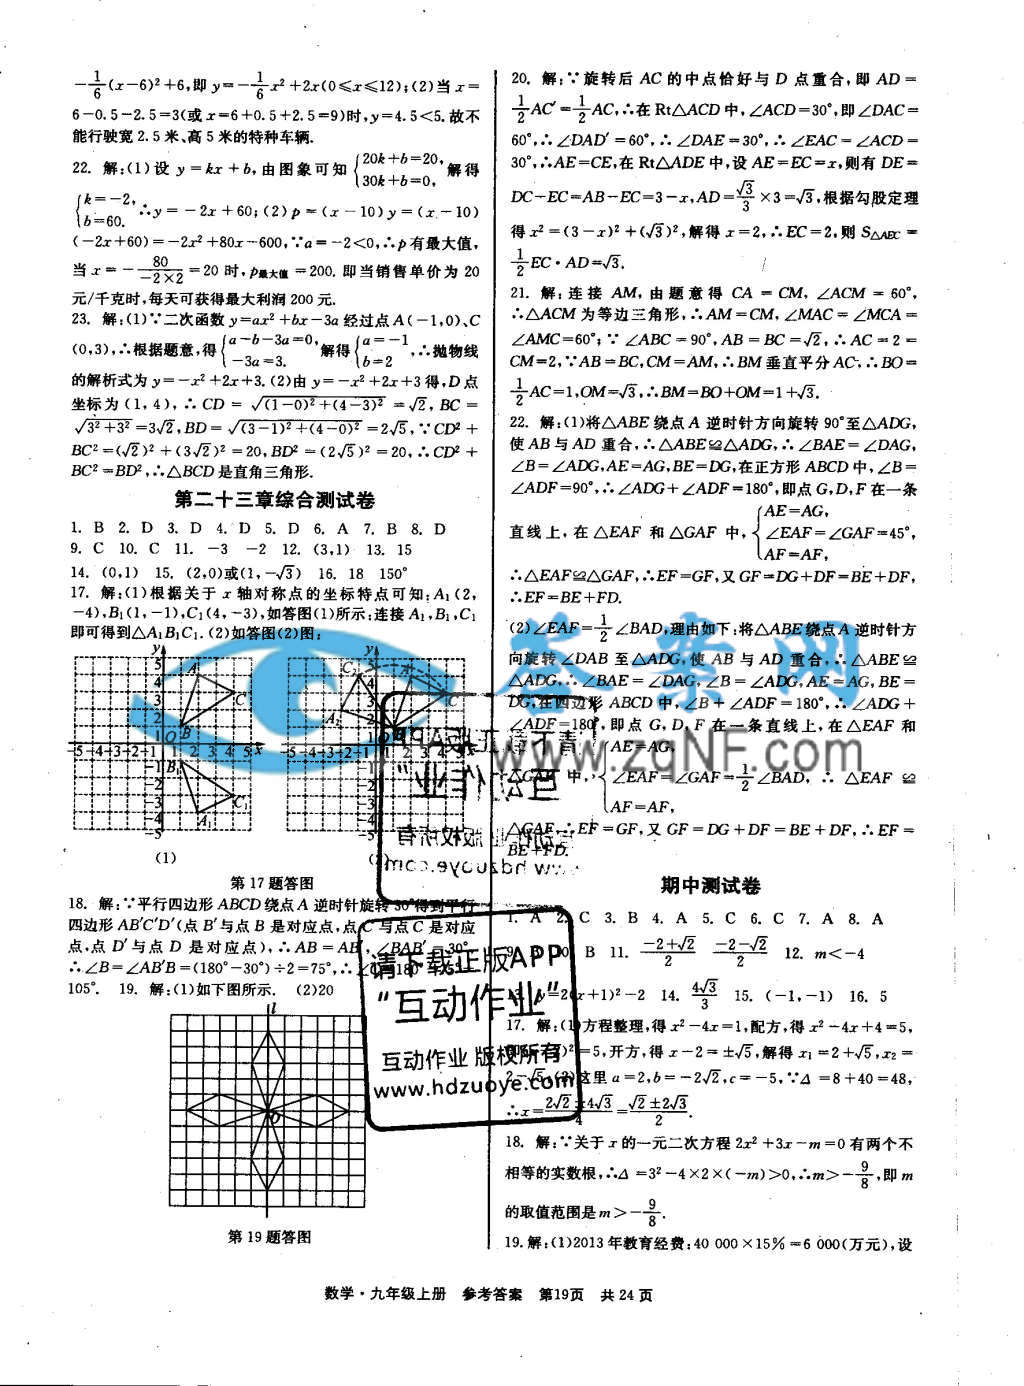 -1/6(x-6)²+6,即 y=-1/6x²+2x(0≤x≤12);(2)当 x=
6-0.5-2.5=3(或 x=6+0.5+2.5=9)时,y=4.5<5.故不
能行驶宽 2.5 米、高 5 米的特种车辆.
22. 解:(1)设 y=kx+b,由图象可知{20k+b=20, 30k+b=0, 解得
{k=-2, b=60. ∴y=-2x+60;(2)p=(x-10)y=(x-10)
(-2x+60)=-2x²+80x-600,∵a=-2<0,∴p有最大值,
当 x=-80/(-2×2)=20 时,p最大值=200.即当销售单价为 20
元/千克时,每天可获得最大利润 200 元.
23. 解:(1)∵二次函数 y=ax²+bx-3a 经过点 A(-1,0)、C
(0,3),∴根据题意,得{a-b-3a=0, -3a=3. 解得{a=-1 b=2 ,∴抛物线
的解析式为 y=-x²+2x+3.(2)由 y=-x²+2x+3 得,D 点
坐标为(1,4),∴CD=√((1-0)²+(4-3)²)=√2,BC=
√(3²+3²)=3√2,BD=√((3-1)²+(4-0)²)=2√5,∵CD²+
BC²=(√2)²+(3√2)²=20,BD²=(2√5)²=20,∴CD²+
BC²=BD²,∴△BCD 是直角三角形.
第二十三章综合测试卷
1. B 2. D 3. D 4. D 5. D 6. A 7. B 8. D
9. C 10. C 11. -3 -2 12. (3,1) 13. 15
14. (0,1) 15. (2,0)或(1,-√3) 16. 18 150°
17. 解:(1)根据关于 x 轴对称点的坐标特点可知:A₁(2,
-4),B₁(1,-1),C₁(4,-3),如答图(1)所示:连接 A₁,B₁,C₁
即可得到△A₁B₁C₁.(2)如答图(2)图:
(1)
第 17 题答图
18. 解:∵平行四边形 ABCD 绕点 A 逆时针旋转 30°得到平行
四边形 AB′C′D′(点 B′与点 B 是对应点,点 C′与点 C 是对应
点,点 D′与点 D 是对应点),∴AB=AB′,∠BAB′=30°,
∴∠B=∠AB′B=(180°-30°)÷2=75°,∴
105°. 19. 解:(1)如下图所示. (2)20
l
O
第 19 题答图
20. 解:∵旋转后 AC 的中点恰好与 D 点重合,即 AD=
1/2AC′=1/2AC,∴在 Rt△ACD 中,∠ACD=30°,即∠DAC=
60°,∴∠DAD′=60°,∴∠DAE=30°,∴∠EAC=∠ACD=
30°,∴AE=CE,在 Rt△ADE 中,设 AE=EC=x,则有 DE=
DC-EC=AB-EC=3-x,AD=√3/3×3=√3,根据勾股定理
得 x²=(3-x)²+(√3)²,解得 x=2,∴EC=2,则 S△AEC=
1/2EC·AD=√3.
21. 解:连接 AM,由题意得 CA=CM,∠ACM=60°,
∴△ACM 为等边三角形,∴AM=CM,∠MAC=∠MCA=
∠AMC=60°;∵∠ABC=90°,AB=BC=√2,∴AC=2=
CM=2,∵AB=BC,CM=AM,∴BM 垂直平分 AC,∴BO=
1/2AC=1,OM=√3,∴BM=BO+OM=1+√3.
22. 解:(1)将△ABE 绕点 A 逆时针方向旋转 90°至△ADG,
使 AB 与 AD 重合,∴△ABE≌△ADG,∴∠BAE=∠DAG,
∠B=∠ADG,AE=AG,BE=DG,在正方形 ABCD 中,∠B=
∠ADF=90°,∴∠ADG+∠ADF=180°,即点 G,D,F 在一条
直线上,在△EAF 和△GAF 中,{AE=AG, ∠EAF=∠GAF=45°, AF=AF,
∴△EAF≌△GAF,∴EF=GF,又 GF=DG+DF=BE+DF,
∴EF=BE+FD.
(2)∠EAF=1/2∠BAD,理由如下:将△ABE绕点A 逆时针方
向旋转∠DAB 至△ADG,使 AB 与 AD 重合,∴△ABE≌
△ADG,∴∠BAE=∠DAG,∠B=∠ADG,AE=AG,BE=
DG,在四边形 ABCD 中,∠B+∠ADF=180°,∴∠ADG+
∠ADF=180°,即点 G,D,F 在一条直线上,在△EAF 和
△GAF 中,{AE=AG, ∠EAF=∠GAF=1/2∠BAD, AF=AF, ∴△EAF≌
△GAF,∴EF=GF,又 GF=DG+DF=BE+DF,∴EF=
BE+FD.
期中测试卷
1. A 2. C 3. B 4. A 5. C 6. C 7. A 8. A
B 11. (-2+√2)/2 (-2-√2)/2 12. m<-4
y=2(x+1)²-2 14. 4√3/3 15. (-1,-1) 16. 5
17. 解:(1)方程整理,得 x²-4x=1,配方,得 x²-4x+4=5,
=5,开方,得 x-2=±√5,解得 x₁=2+√5,x₂=
2-√5;(2)这里 a=2,b=-2√2,c=-5,∵Δ=8+40=48,
∴x=(2√2±4√3)/4=(√2±2√3)/2.
18. 解:∵关于 x 的一元二次方程 2x²+3x-m=0 有两个不
相等的实数根,∴Δ=3²-4×2×(-m)>0,∴m>-9/8,即 m
的取值范围是 m>-9/8.
19.解:(1)2013 年教育经费:40 000×15%=6 000(万元),设
答案网
www.zqNF.com
请下载正版APP
“互动作业”
互动作业 版权所有
www.hdzuoye.com
数学·九年级上册 参考答案 第19页 共 24 页